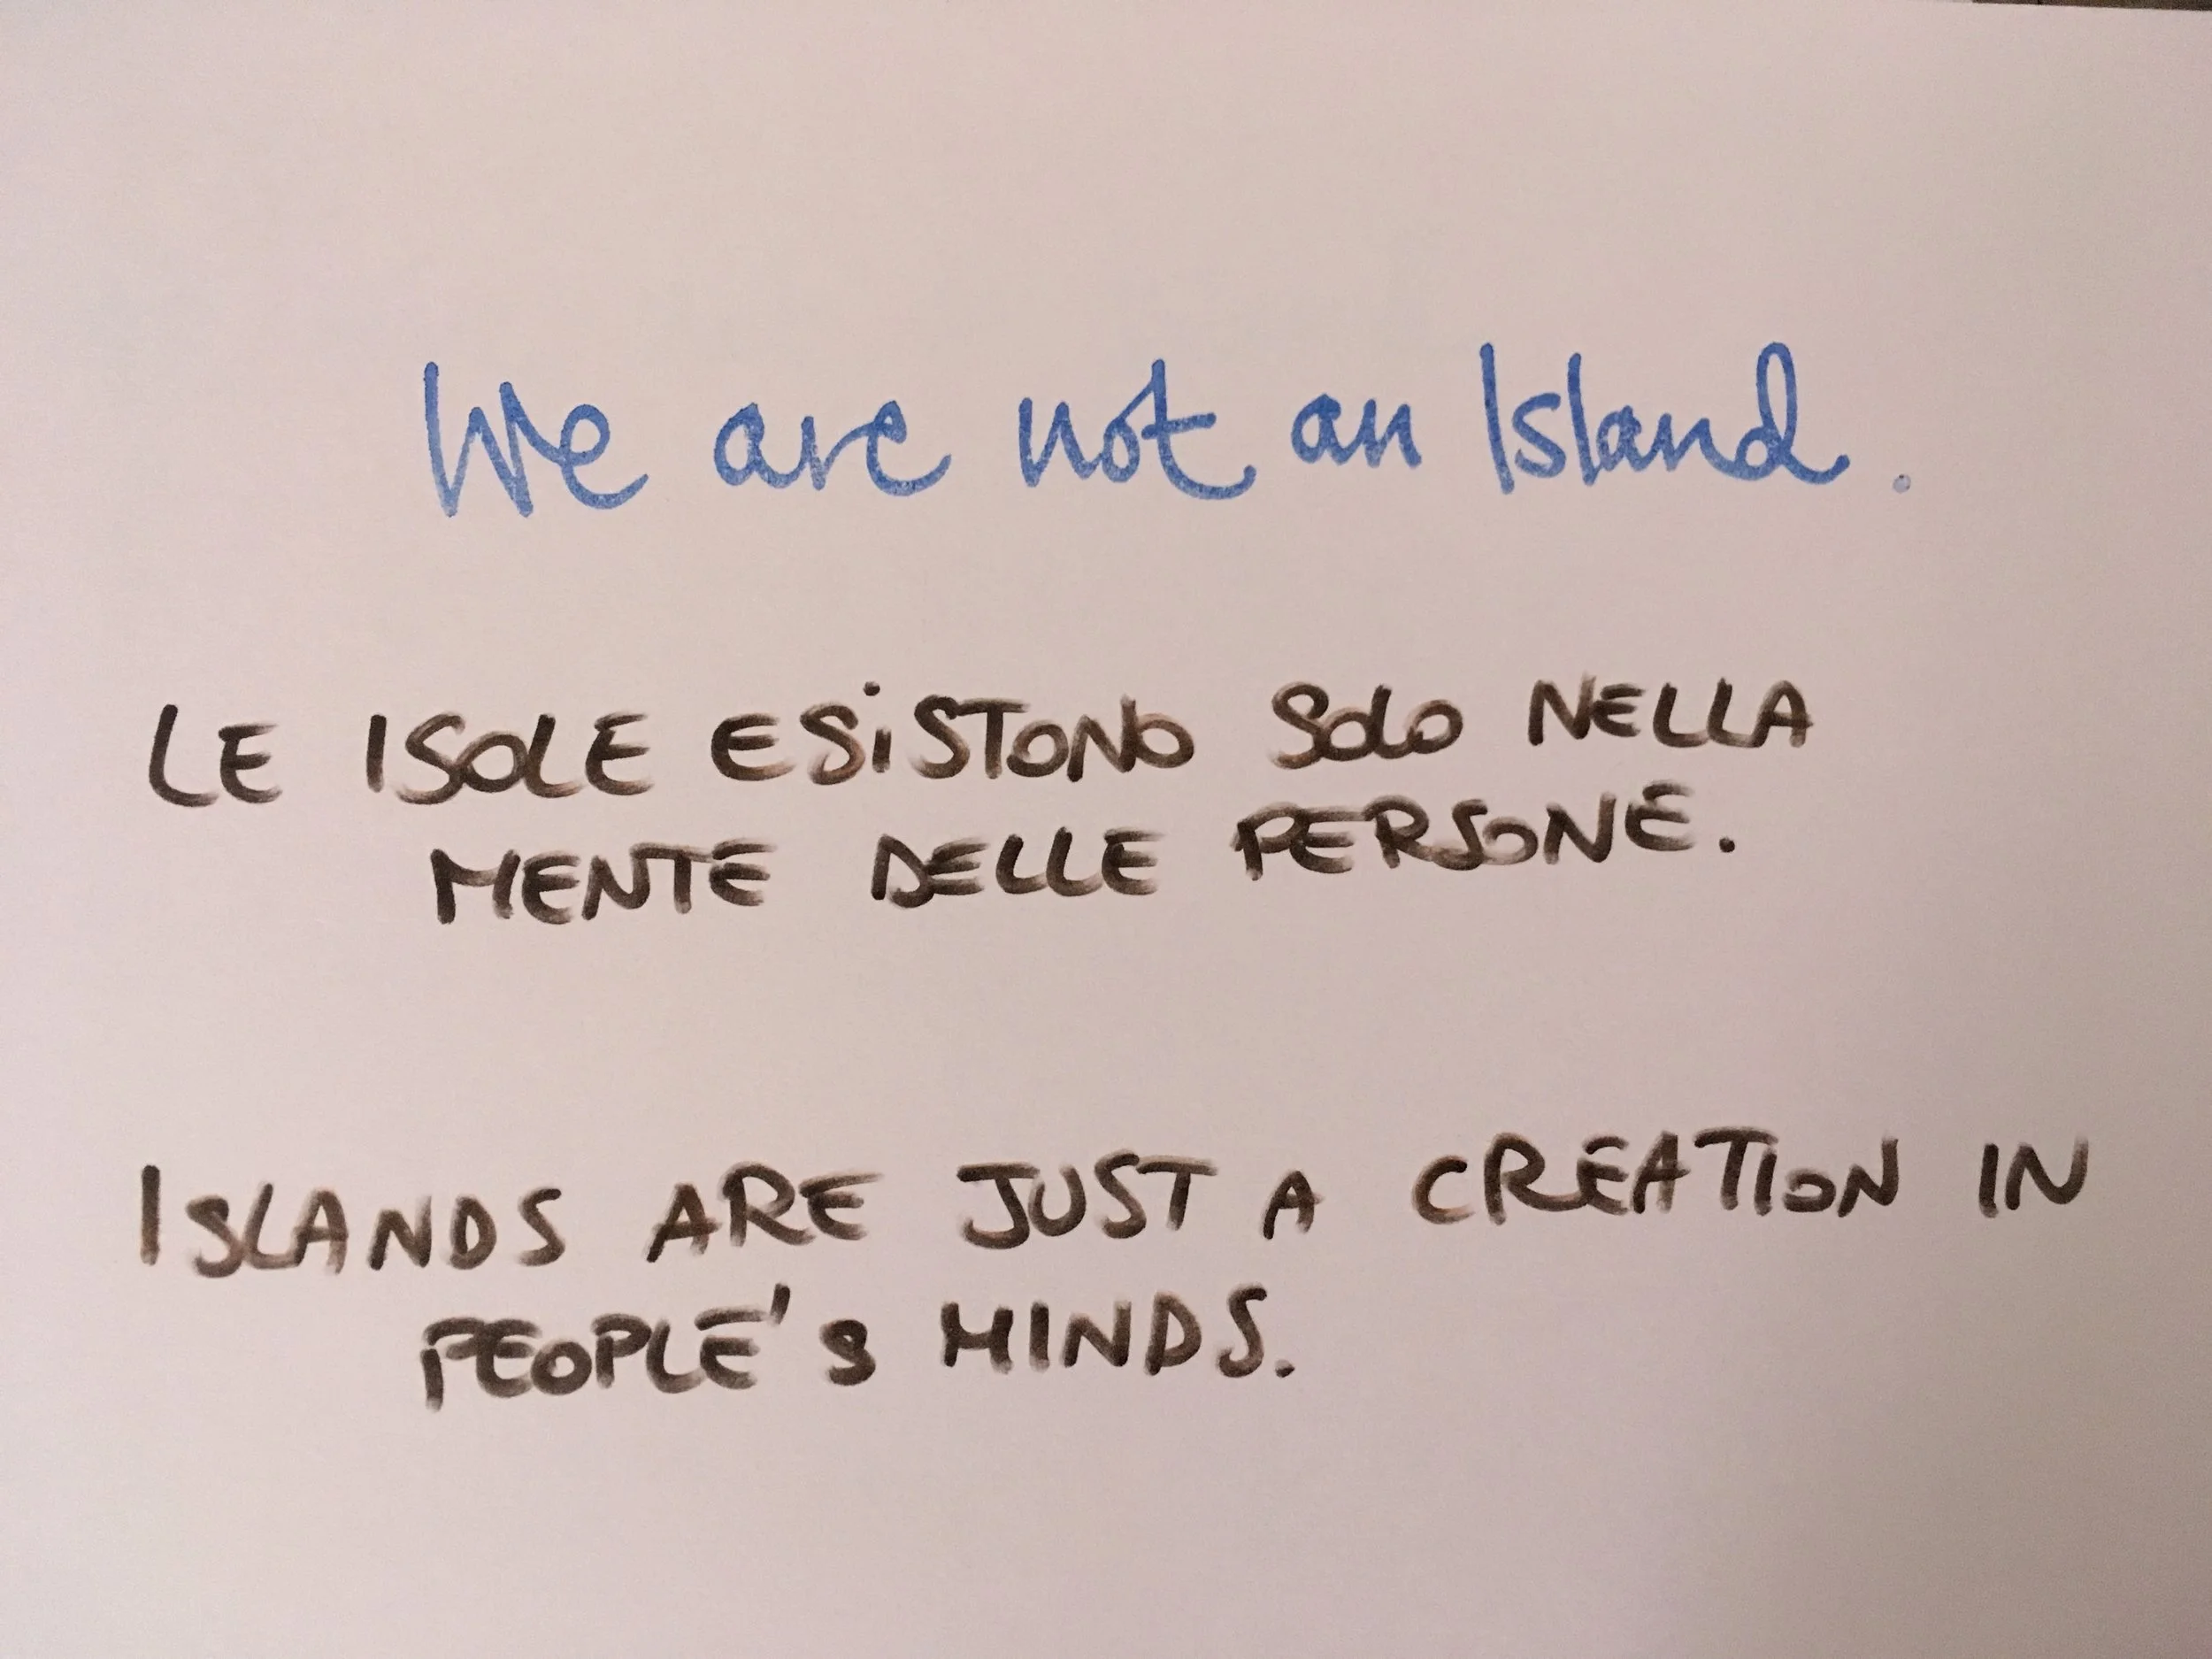 We are not an Island.
LE ISOLE ESiSTONO SOLO NELLA
MENTE DELLE PERSONE.
ISLANDS ARE JUST A CREATION IN
PEOPLE's MINDS.